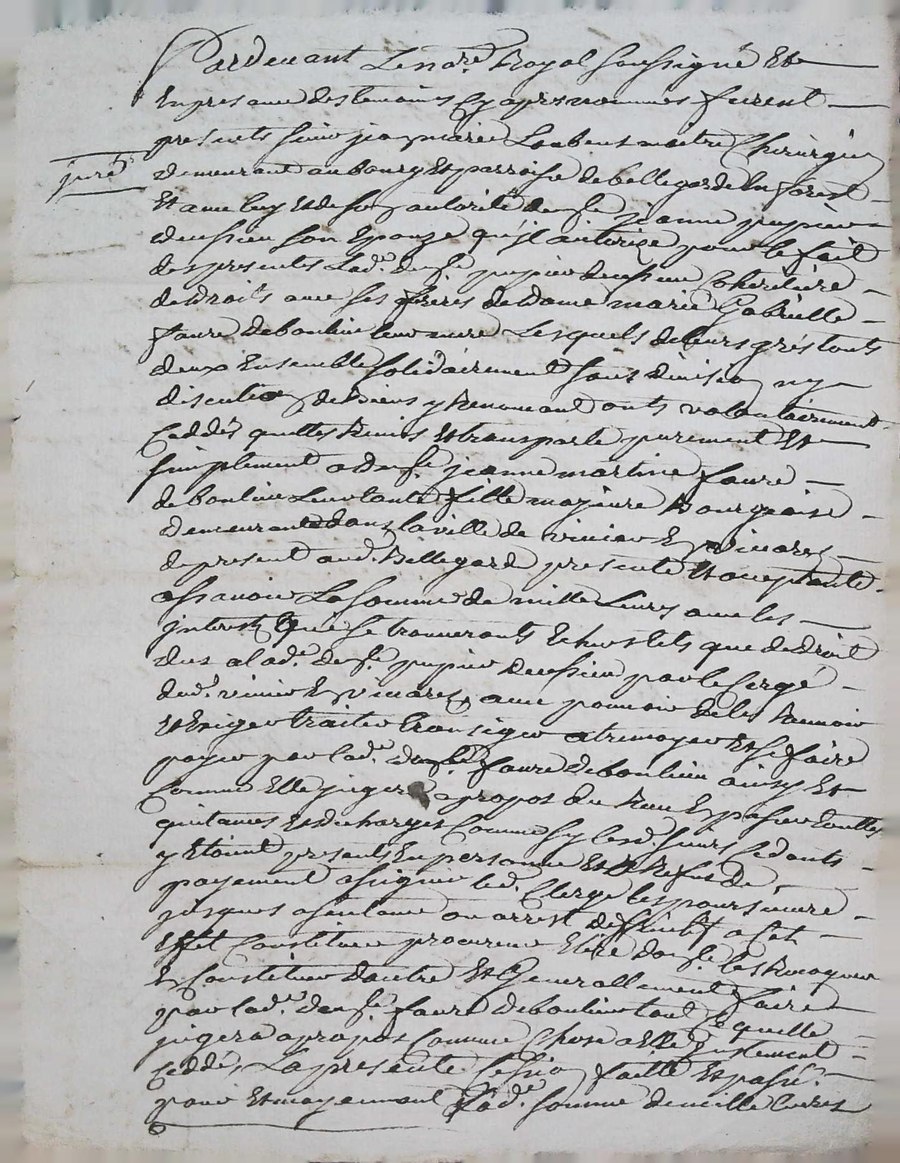 Pardevant Le nore. Royal soussigné Et
En presance des temoins Cy apres nommes furent
presents sieur jean marie Loubent maitre Chirurgien
juré
demeurant au bourg Et parroisse de bellegarde la forest
Et avec luy Et de son autorité demlle jeanne pupier
son Epouze qu'il autorize pour le fait
des presentes Lade. demlle. pupier Coheritiere
de droits avec ses freres de dame marie Gabrielle
faure deboulieu leur mere Lesquels de leurs grés touts
deux Ensemble solidairement sans division ny
discution de biens y Renoncant onts volontairement
Ceddés quittes Remis Et transporté purement Et
simplement a demlle. jeanne martine faure
deboulieu Leur tante fille majeure Bourgeoise
demeurante dans la ville de
de present aud. Bellegard presente Et acceptante
assavoir La somme de mille Livres avec les
jnterest que se trouveronts Echus tels que de droit
dus a lade. demlle. pupier par le Clergé
de avec pouvoir de les Recevoir
Et Exiger traiter transiger atremoyer Et se faire
payer par lade. demlle. faure deboulieu ainsy Et
Comme Elle jugera apropos du Receu En passer touttes
quittances Et decharges Comme sy lesd. sieurs Cedants
y Etoint presents En personne Et a Refus de
payement assigner led. Clergé les poursuivre
jusques a sentence ou arrest definitif a cet
Effet Constituer procureur Elire dom. les Revoquer
En Constituer dautre Et Generallement faire
par lade. demlle. faure deboulieu tout Ce quelle
jugera apropos Comme Chose a Elle justement
Ceddée La presente Cession faitte Et passé
pour Et moyennant lade. somme de mille livres